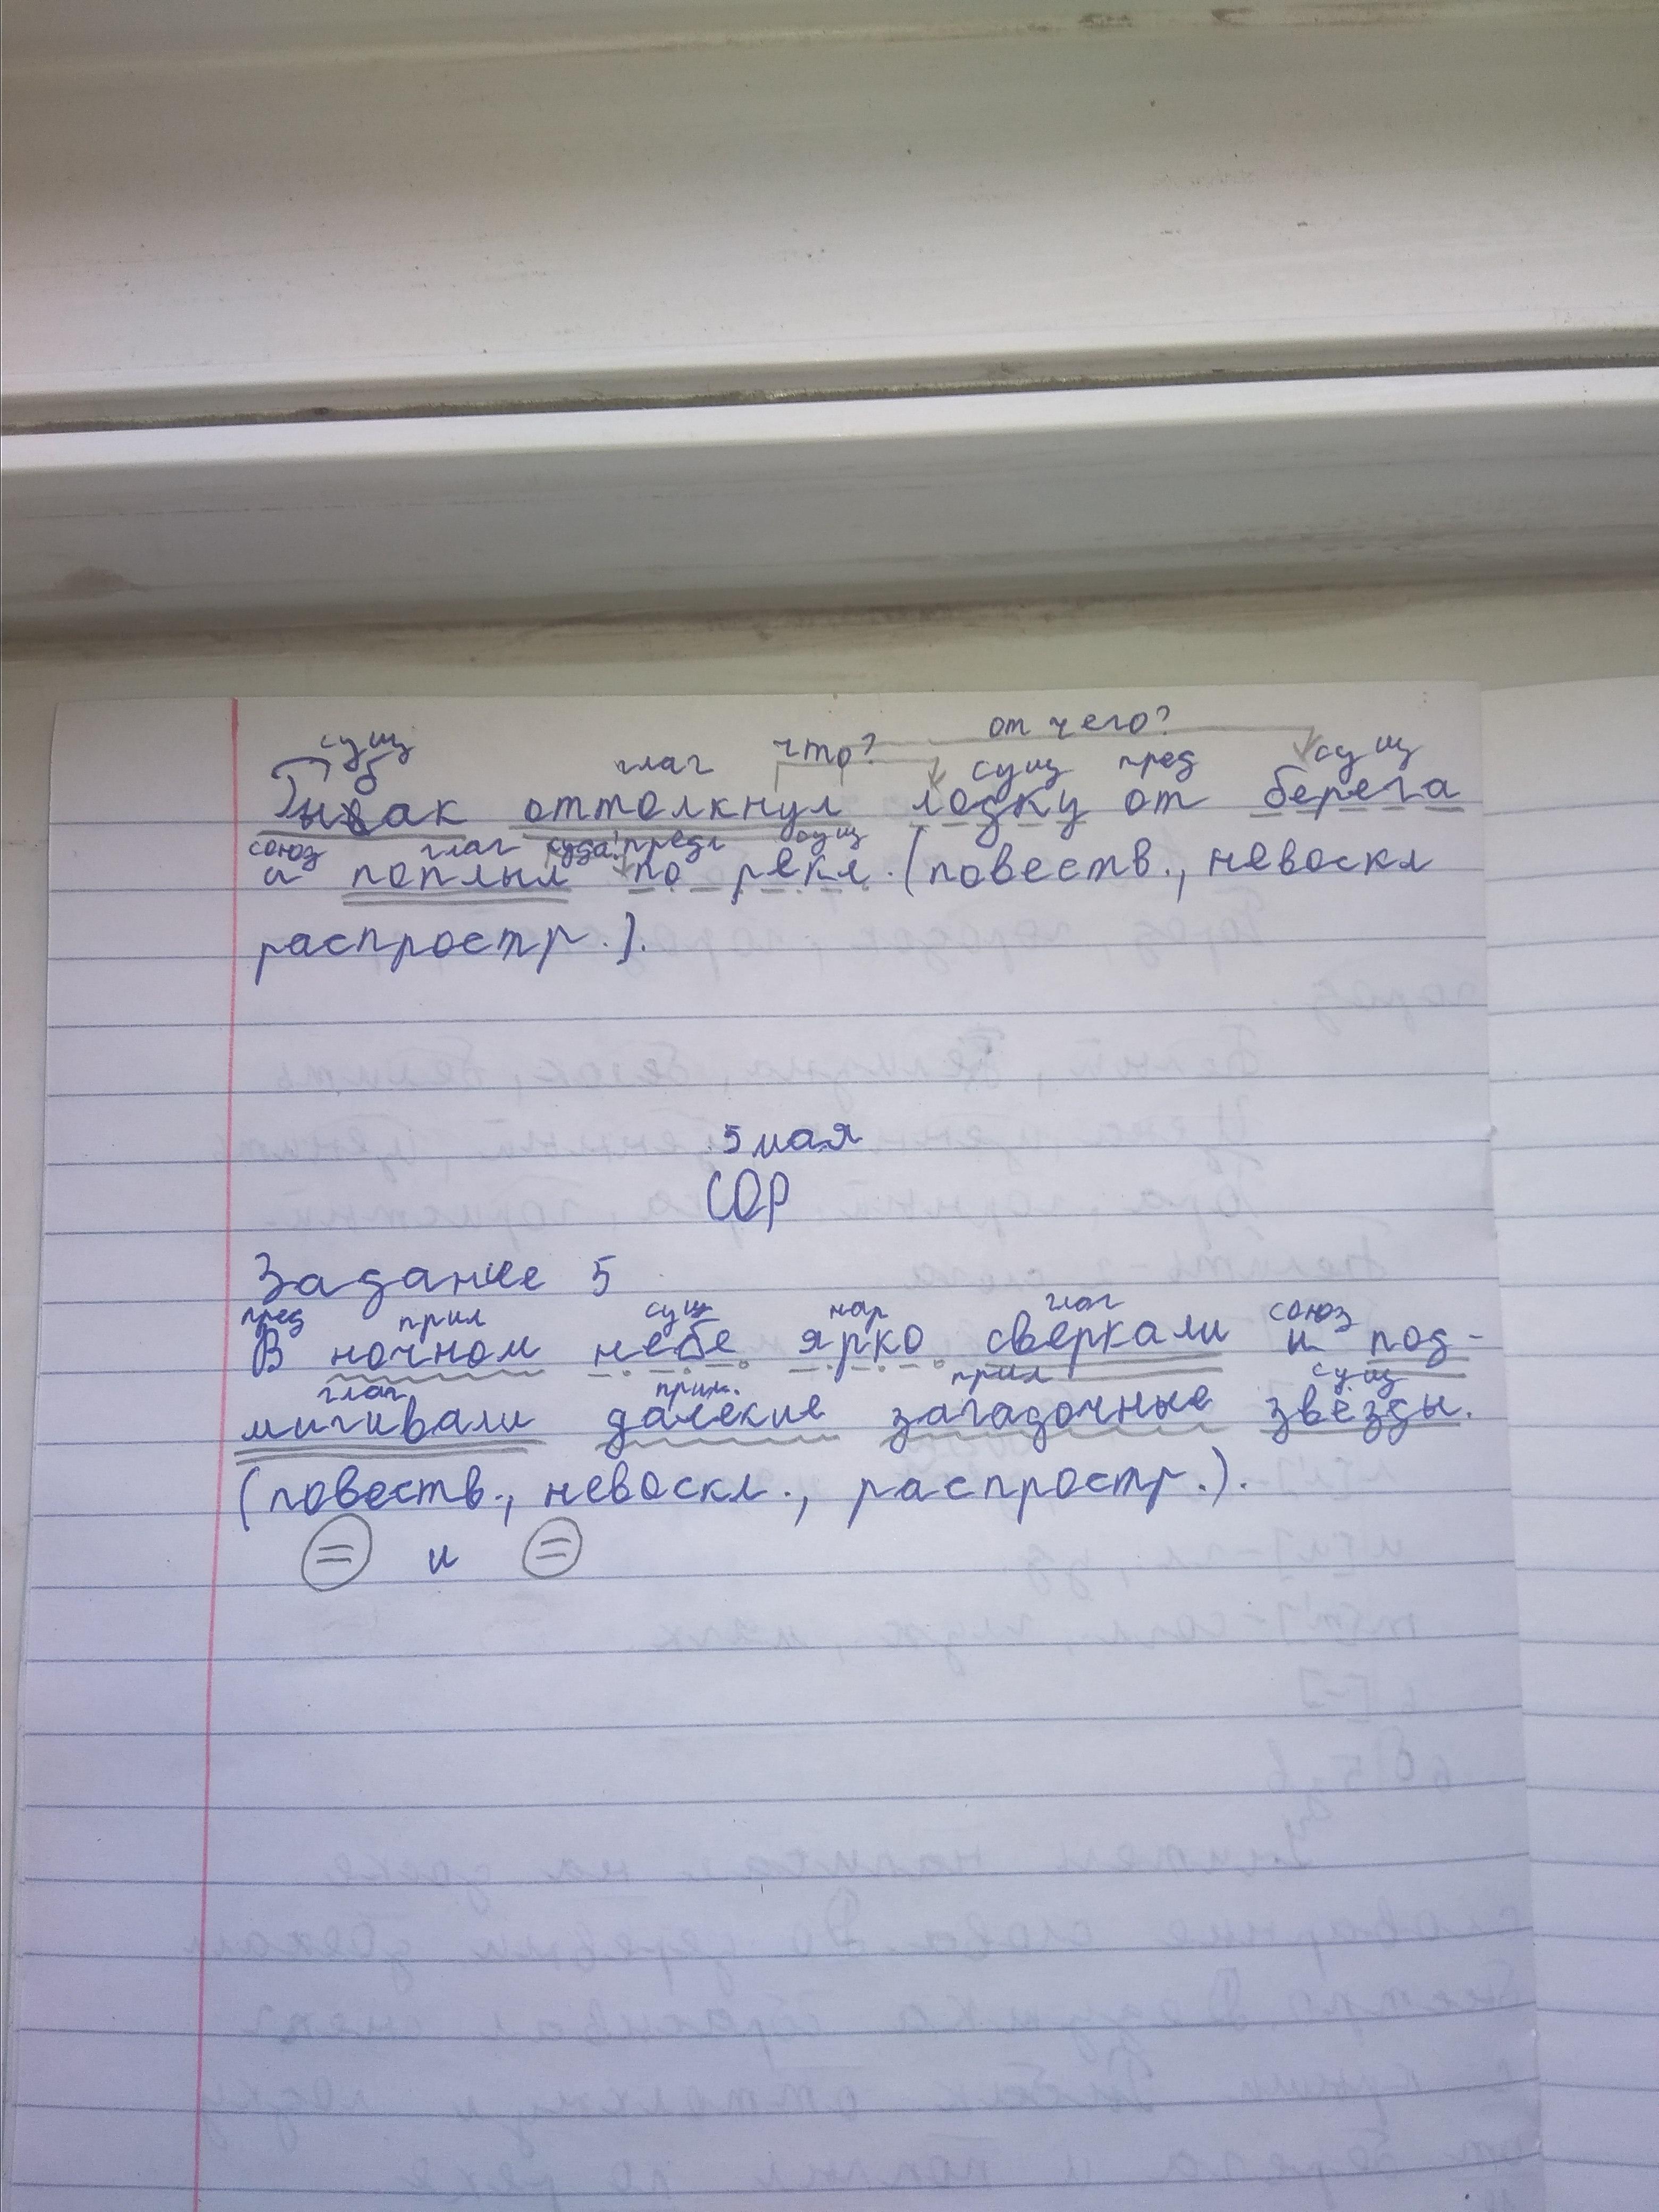 от чего?
сущ глаг что? сущ пред сущ
б
Рывак оттолкнул лодку от берега
союз глаг куда? предл сущ
и поплыл по реке. (повеств., невоскл
распростр.).
5 мая
СОР
Задание 5
пред прил сущ нар глаг союз
В ночном небе ярко сверкали и под-
глаг прил. прил сущ
мигивали далекие загадочные звёзды.
(повеств., невоскл., распростр.).
= и =